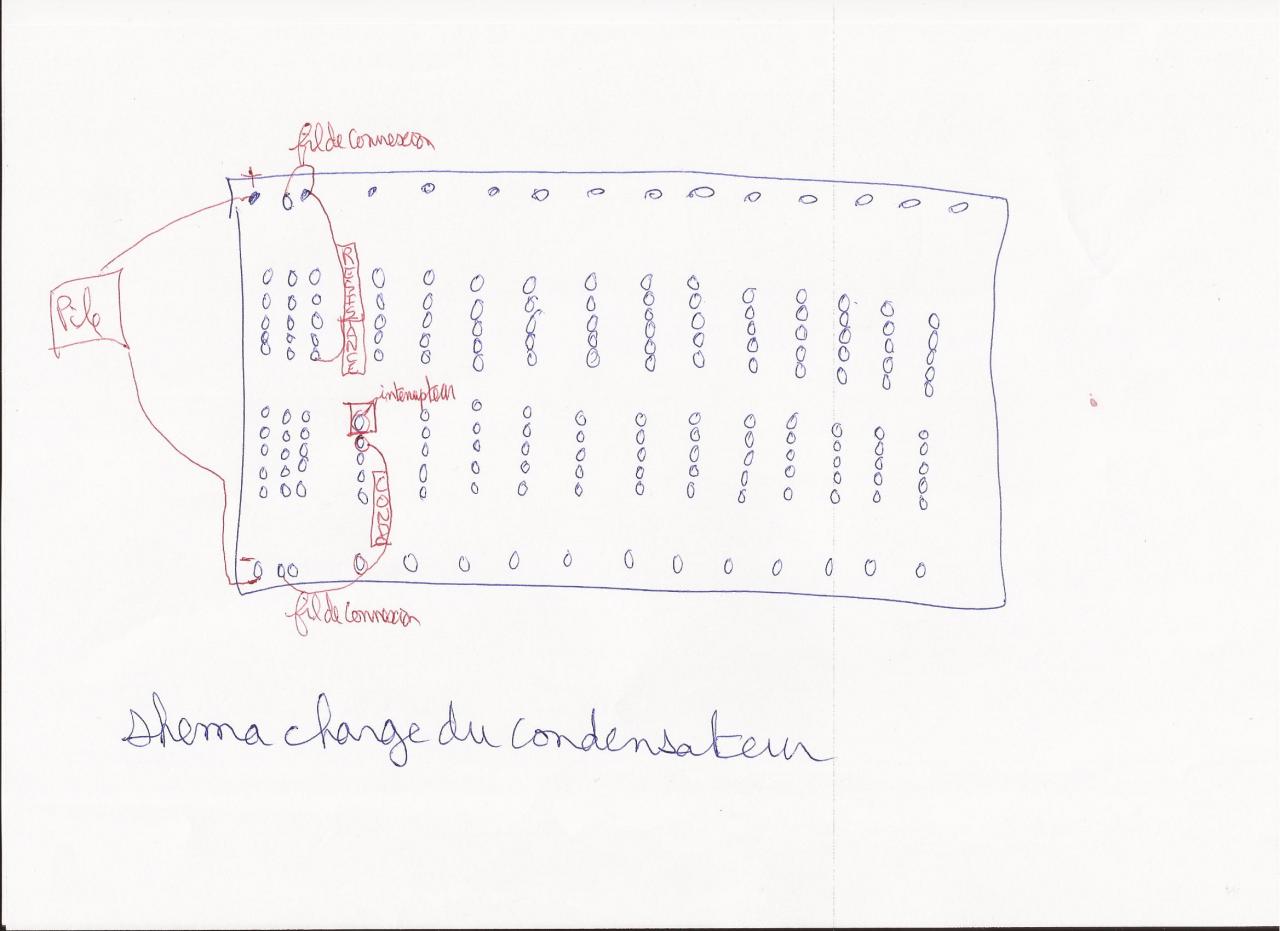 fil de connexion
+
Pile
RESISTANCE
interrupteur
COND
-
fil de connexion
shema charge du condensateur